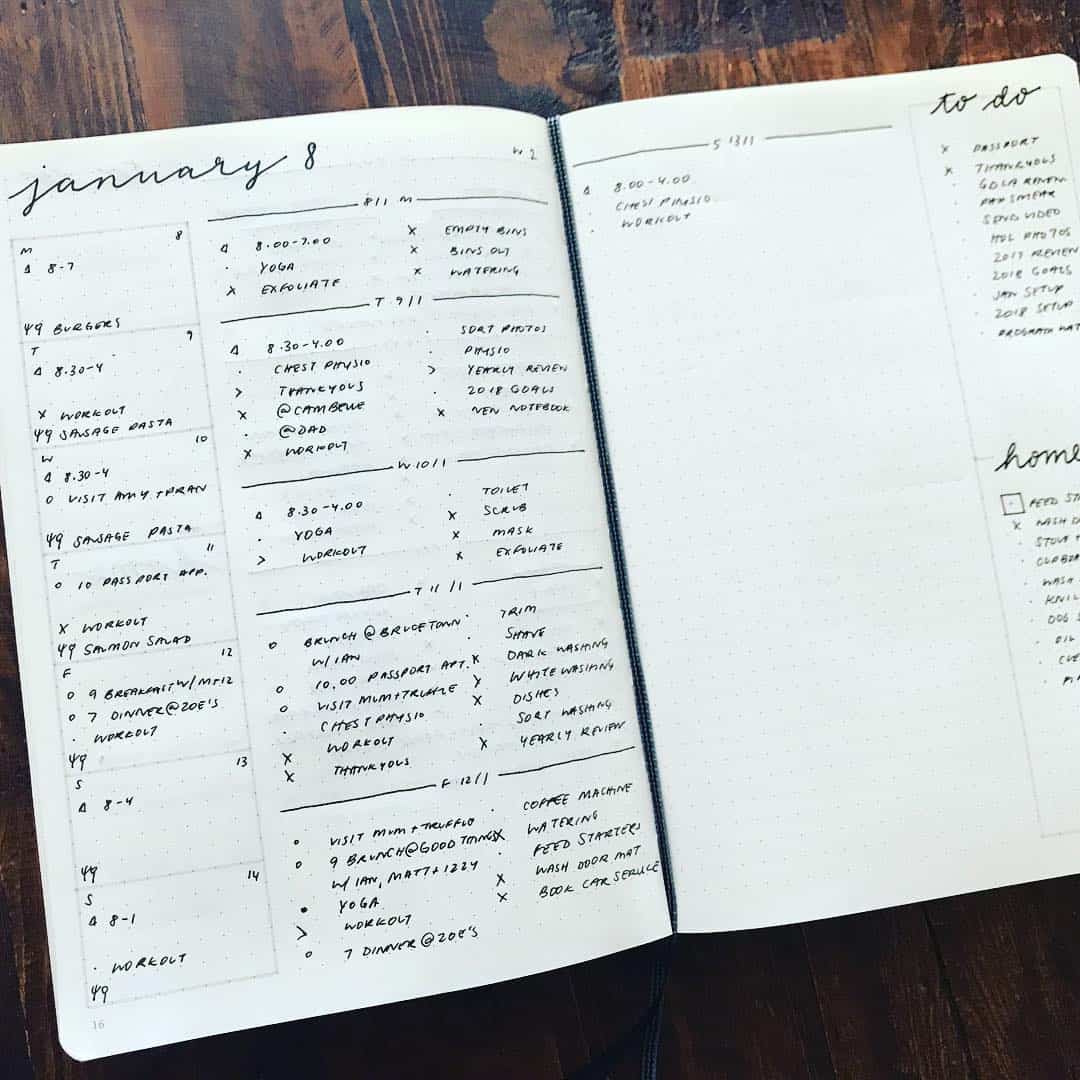 january 8
W2
M 8
Δ 8-7
BURGERS
T 9
Δ 8.30-4
X WORKOUT
SAUSAGE PASTA
W 10
Δ 8.30-4
O VISIT AMY + FRAN
SAUSAGE PASTA
T 11
O 10 PASSPORT APP.
X WORKOUT
SALMON SALAD
F 12
O 9 BREAKFAST W/ M+IZ
O 7 DINNER @ ZOE'S
· WORKOUT
S 13
Δ 8-4
S 14
Δ 8-1
· WORKOUT
16
8/1 M
Δ 8.00-7.00
· YOGA
X EXFOLIATE
X EMPTY BINS
X BINS OUT
X WATERING
T 9/1
Δ 8.30-4.00
· CHEST PHYSIO
> THANKYOUS
X @CAMBELLE
· @DAD
X WORKOUT
· SORT PHOTOS
· PHYSIO
> YEARLY REVIEW
· 2018 GOALS
X NEW NOTEBOOK
W 10/1
Δ 8.30-4.00
· YOGA
> WORKOUT
· TOILET
X SCRUB
X MASK
X EXFOLIATE
T 11/1
O BRUNCH @ BRUCETOWN
W/ IAN
O 10.00 PASSPORT APT.
O VISIT MUM + TRUFFLE
· CHEST PHYSIO
X WORKOUT
X THANKYOUS
· TRIM
· SHAVE
X DARK WASHING
X WHITE WASHING
X DISHES
· SORT WASHING
X YEARLY REVIEW
F 12/1
O VISIT MUM + TRUFFLE
O 9 BRUNCH @ GOOD THINGS
W/ IAN, MATT + IZZY
• YOGA
> WORKOUT
O 7 DINNER @ ZOE'S
· COFFEE MACHINE
X WATERING
· FEED STARTERS
X WASH DOOR MAT
X BOOK CAR SERVICE
S 13/1
Δ 8.00-4.00
· CHEST PHYSIO
· WORKOUT
to do
X PASSPORT
X THANKYOUS
· PAP SMEAR
· SEND VIDEO
· PHOTOS
· 2017 REVIEW
· 2018 GOALS
· JAN SETUP
· 2018 SETUP
· PROGRAM
home
FEED
X WASH
· WASH
· DOG
· OIL